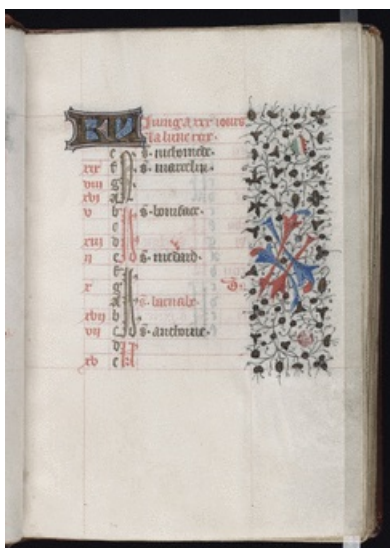 KL Juing a xxx iours
la lune
e S. nichomede.
xix f S. marcelin.
viii g
xvi A
v b S. boniface.
c
xiii d
ii e S. medard.
f
x g
A S. barnabe.
b
vii c S. anthoine.
d
xv e